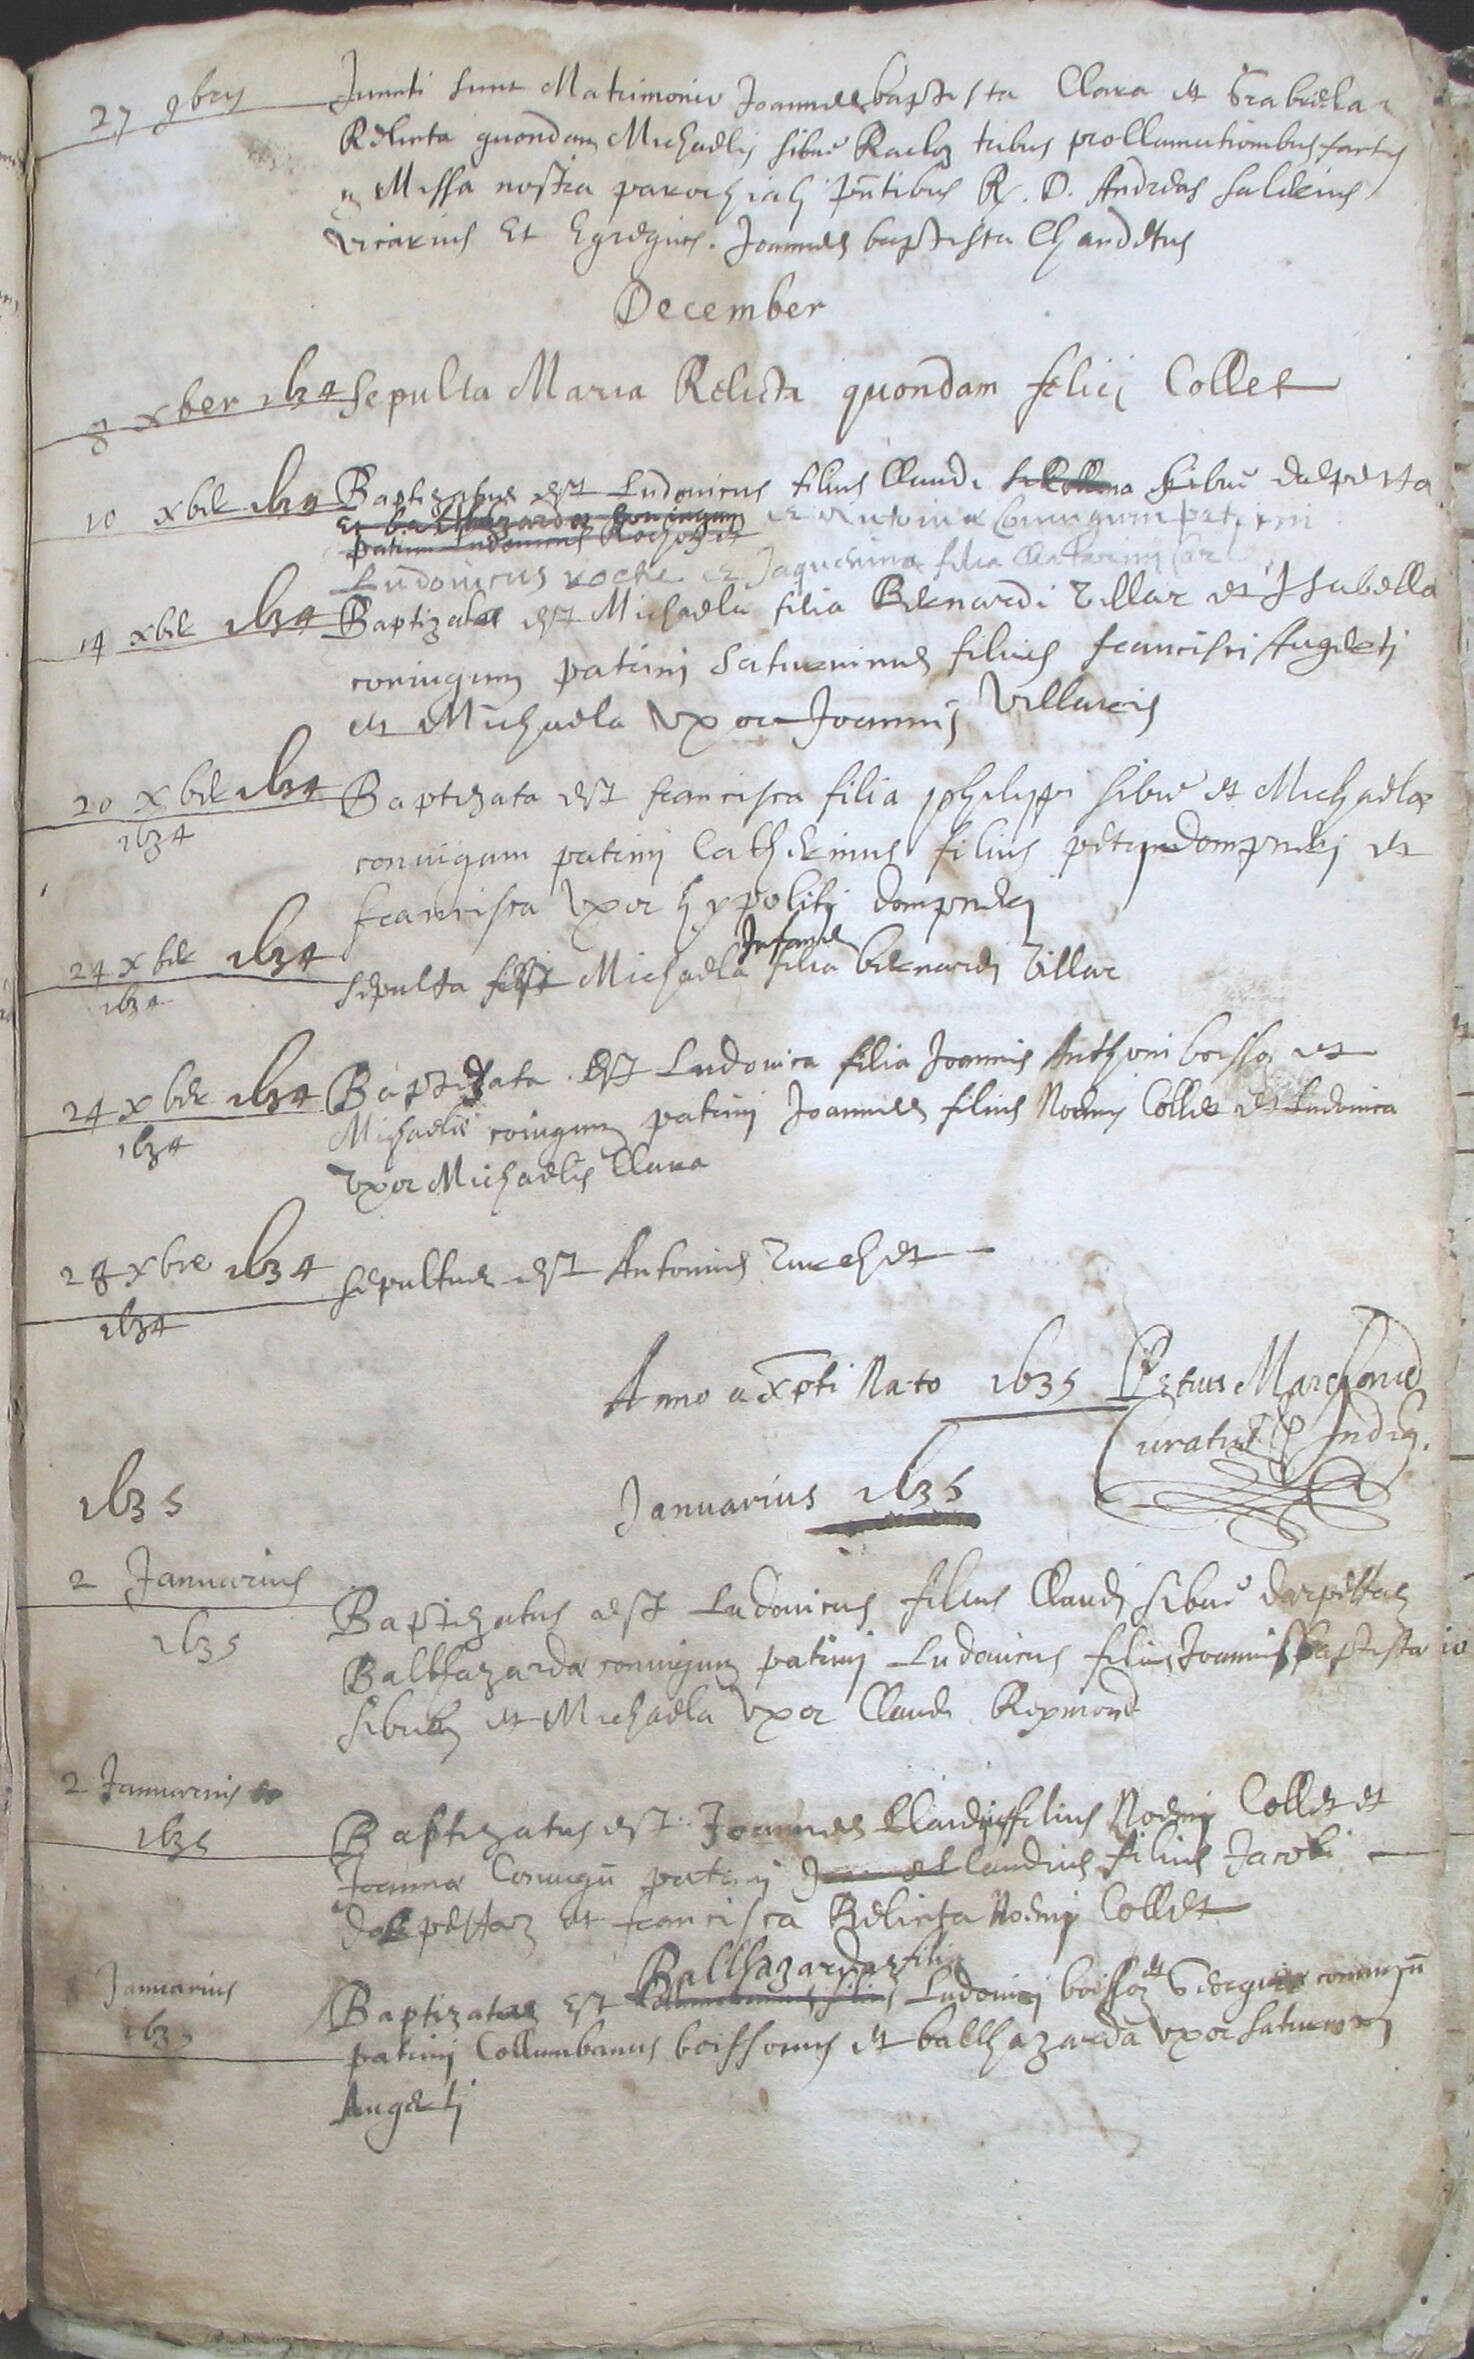 27 9bris Juncti sunt Matrimonio Joannesbaptista Clara et Gabriela
Relicta quondam Michaelis sibue tribus proclamationibus factis
in Missa nostra parochiali pntibus R. D. Andreas
Vicarius Et Egregius. Joannes baptista Chandetus
December
8 xber 1634 Sepulta Maria Relicta quondam felicij Collet
10 xbr 1634 Baptizatus est Ludovicus filius Claudi sibue dalpesta
et balthazarda coniugum et Antonia Coniugum patrini
patrini Ludovicus
Ludovicus roche et Jaquemina filia Catarini
14 xbr 1634 Baptizata est Michaela filia Bernardi Villar et Isabella
coniugum patrini Saturninus filius francisci Augerti
et Michaela Vxor Joannis Villaris
20 xbr 1634 Baptizata est francisca filia philippi sibue et Michaelae
1634
coniugum patrini Catherinus filius petri dompnei et
francisca Vxor hypoliti dompnei
24 xbr 1634 Infans
Sepulta est Michaela filia bernardi Villar
1634
24 xbr 1634 Baptizata est Ludovica filia Joannis Anthoni boisso et
Michaelis coniugum patrini Joannes filius Noemi Collet et Ludovica
1634
Vxor Michaelis Clara
28 xbre 1634 Sepultus est Antonius
1634
Anno a xpti Nato 1635 Petrus
Curatus Indig.
1635
Januarius 1635
2 Januarius
Baptizatus est Ludovicus filius Claudi sibue darpettaz
1635
Balthazarda coniugum patrini Ludovicus filius Joannisbaptista
et Michaela Vxor Claudi Reymond
2 Januarius
Baptizatus est Joannes Claudius filius Noemi Collet et
1635
Joanna Coniugū patrini Claudius filius Jacobi
dalpettaz et francisca Relicta Noemi Collet
Januarius Balthazarda filia
Baptizata Est Ludovici boissoz et Georgia coniugū
1635
patrini Collumbanus boissonus et balthazarda Vxor Saturnini
Augerti